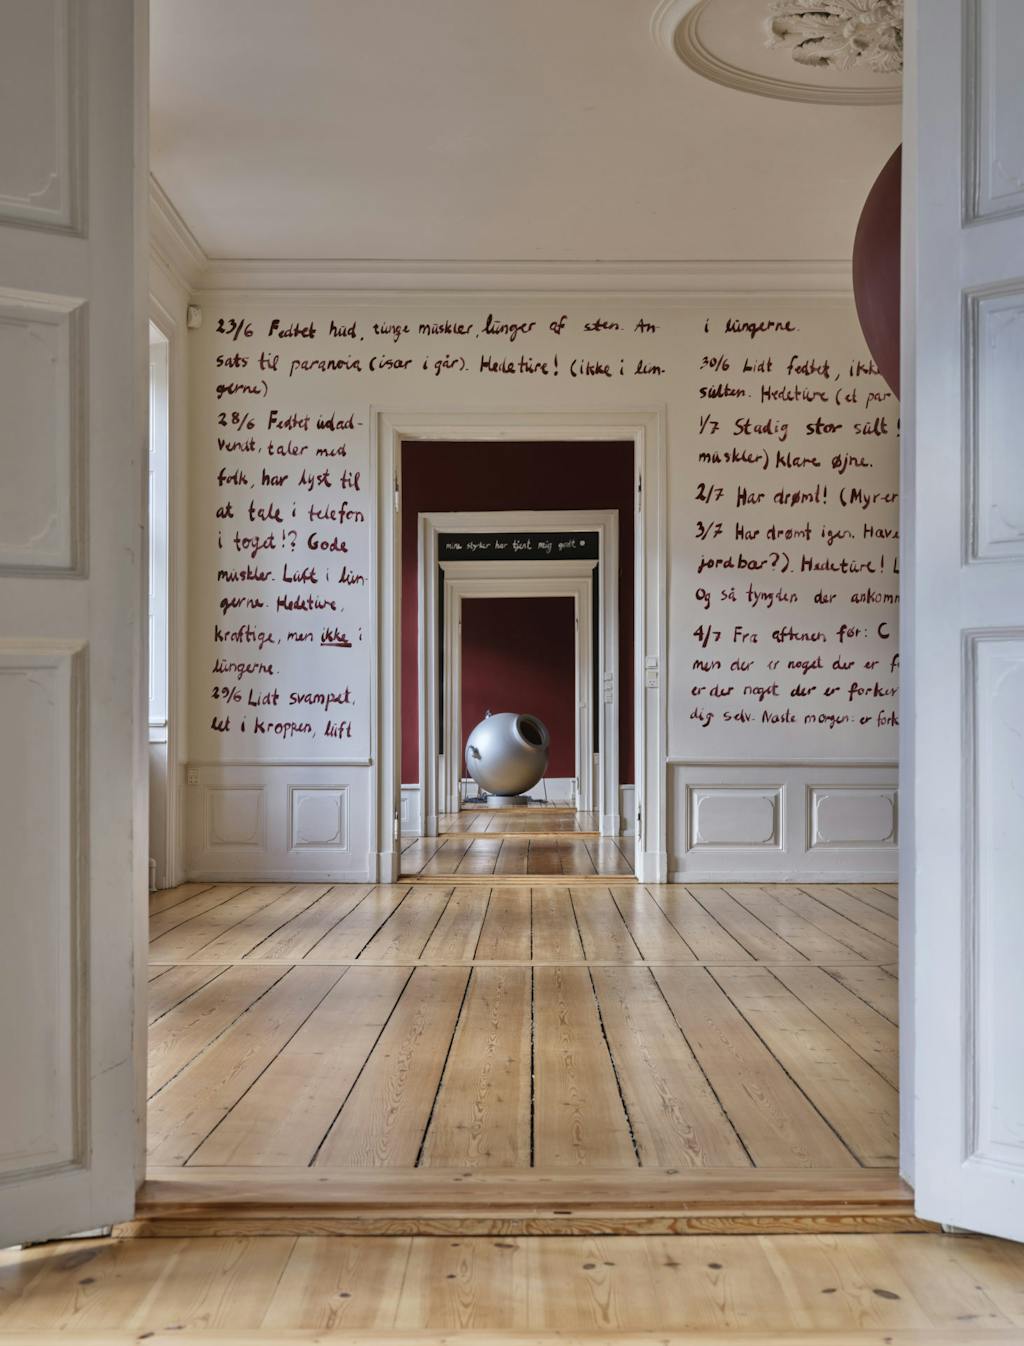 23/6 Fedtet hud, tunge muskler, lunger af sten. An-
sats til paranoia (især i går). Hedeture! (ikke i lun-
gerne)
28/6 Fedtet udad-
vendt, taler med
folk, har lyst til
at tale i telefon
i toget!? Gode
muskler. Luft i lun-
gerne. Hedeture,
kraftige, men ikke i
lungerne.
29/6 Lidt svampet,
let i kroppen, luft
i lungerne.
30/6 Lidt fedtet, ikke
sulten. Hedeture (et par
1/7 Stadig stor sult!
muskler) klare øjne.
2/7 Har drømt! (Myr-er
3/7 Har drømt igen. Have
jordbær?). Hedeture! L
Og så tyngden der ankom
4/7 Fra aftenen før: C
men der er noget der er f
er der noget der er forker
dig selv. Næste morgen: er fork
mine styrker har tjent mig godt